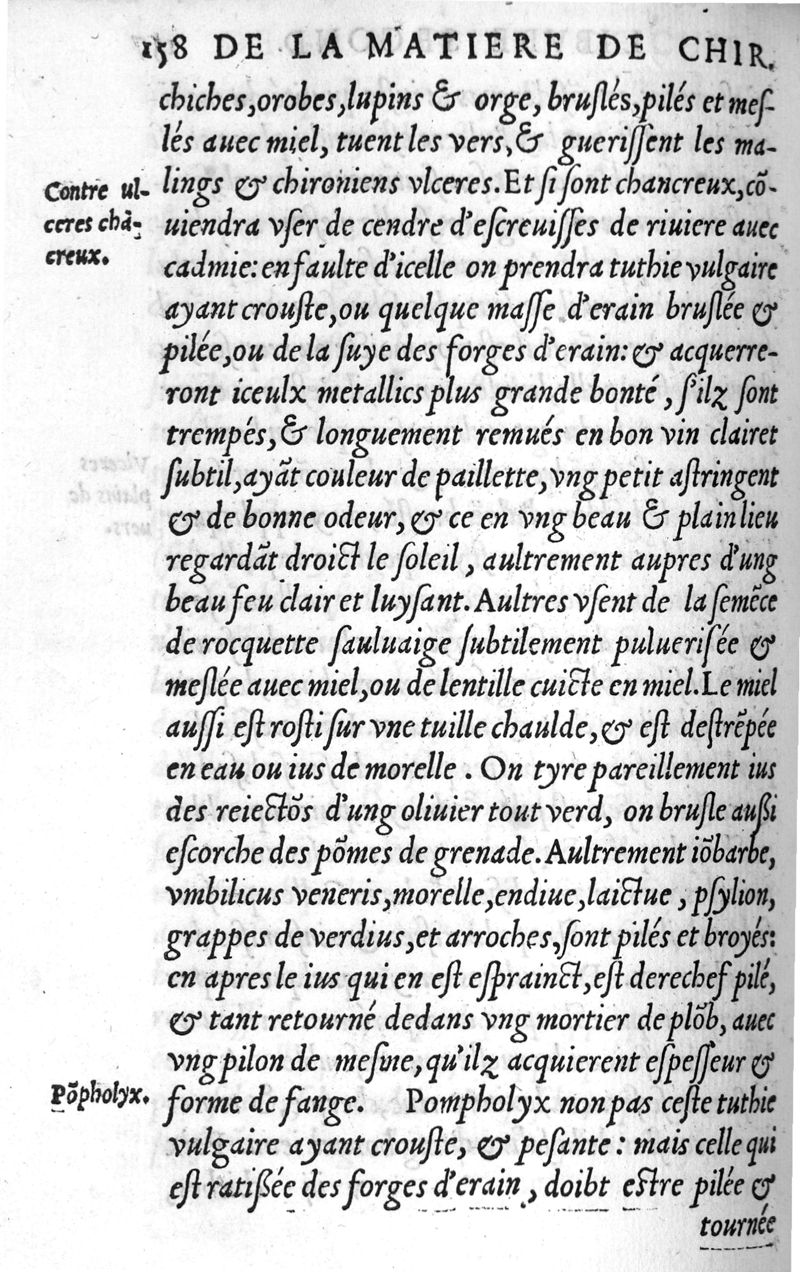 158 DE LA MATIERE DE CHIR.
chiches, orobes, lupins & orge, bruſlés, pilés et meſ-
lés auec miel, tuent les vers, & gueriſſent les ma-
Contre ul-
ceres chã-
creux.
lings & chironiens vlceres. Et ſi ſont chancreux, cõ-
uiendra vſer de cendre d'eſcreuiſſes de riuiere auec
cadmie: en faulte d'icelle on prendra tuthie vulgaire
ayant crouſte, ou quelque maſſe d'erain bruſlée &
pilée, ou de la ſuye des forges d'erain: & acquerre-
ront iceulx metallics plus grande bonté, ſ'ilz ſont
trempés, & longuement remués en bon vin clairet
ſubtil, ayãt couleur de paillette, vng petit aſtringent
& de bonne odeur, & ce en vng beau & plain lieu
regardãt droict le ſoleil, aultrement aupres d'ung
beau feu clair et luyſant. Aultres vſent de la ſemẽce
de rocquette ſauluaige ſubtilement pulueriſée &
meſlée auec miel, ou de lentille cuicte en miel. Le miel
auſſi eſt roſti ſur vne tuille chaulde, & eſt deſtrẽpée
en eau ou ius de morelle. On tyre pareillement ius
des reiectõs d'ung oliuier tout verd, on bruſle auſſi
eſcorche des põmes de grenade. Aultrement iõbarbe,
vmbilicus veneris, morelle, endiue, laictue, pſylion,
grappes de verdius, et arroches, ſont pilés et broyés:
en apres le ius qui en eſt eſprainct, eſt derechef pilé,
& tant retourné dedans vng mortier de plõb, auec
vng pilon de meſme, qu'ilz acquierent eſpeſſeur &
Põpholyx.
forme de fange. Pompholyx non pas ceſte tuthie
vulgaire ayant crouſte, & peſante: mais celle qui
eſt ratiſſée des forges d'erain, doibt eſtre pilée &
tournée